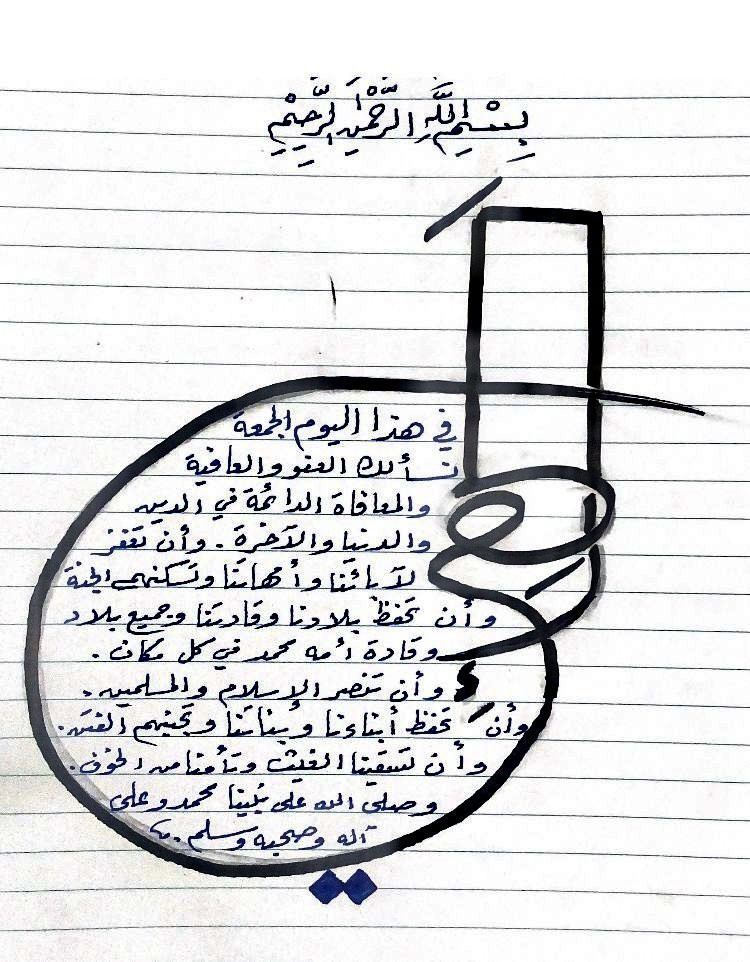 بِسْمِ اللَّهِ الرَّحْمٰنِ الرَّحِيْمِ
في هذا اليوم الجمعة
نسألك العفو والعافية
والمعافاة الدائمة في الدين
والدنيا والآخرة . وأن تغفر
لآبائنا وأمهاتنا وتسكنهم الجنة
وأن تحفظ بلادنا وقادتنا وجميع بلاد
وقادة أمه محمد في كل مكان .
وأن تنصر الإسلام والمسلمين .
وأن تحفظ أبناءنا وبناتنا وتجنبهم الفتن .
وأن تسقينا الغيث وتأمنا من الخوف .
وصلى الله على نبينا محمد وعلى
آله وصحبه وسلم .